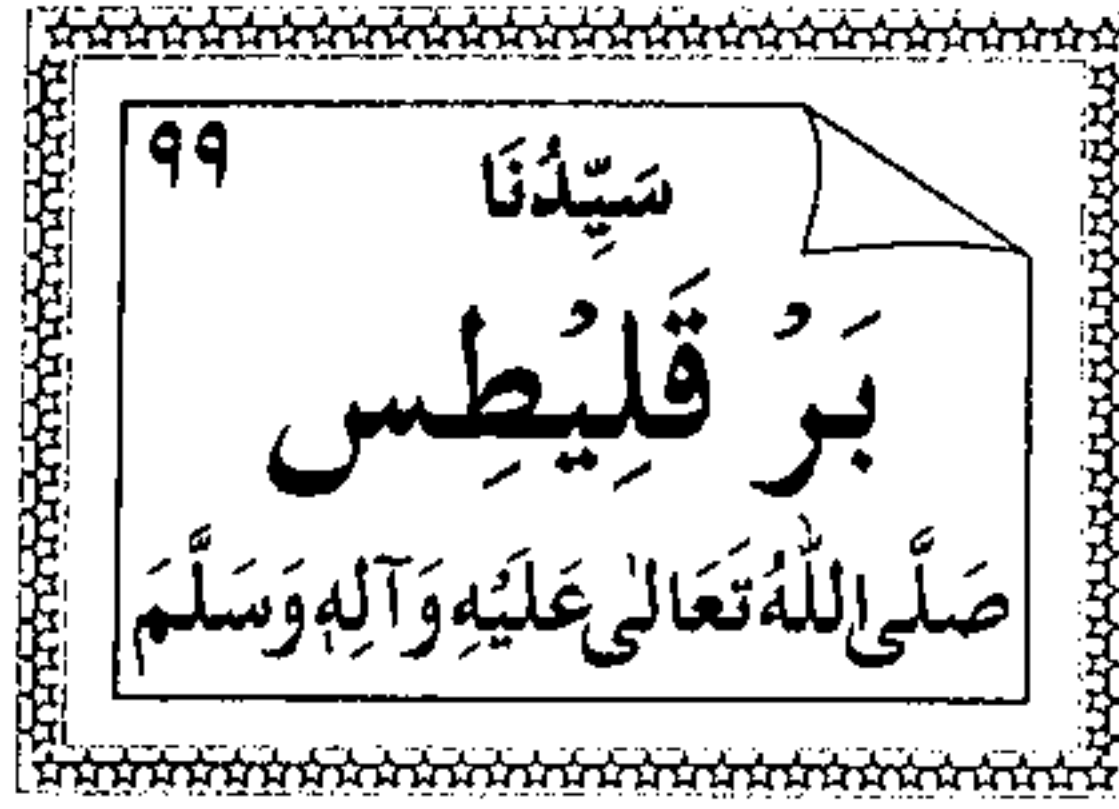 ۹۹
سَیِّدُنَا
بَرْ قَلِیْطِس
صَلَّی اللّٰهُ تَعَالٰی عَلَیْهِ وَآلِهٖ وَسَلَّمَ